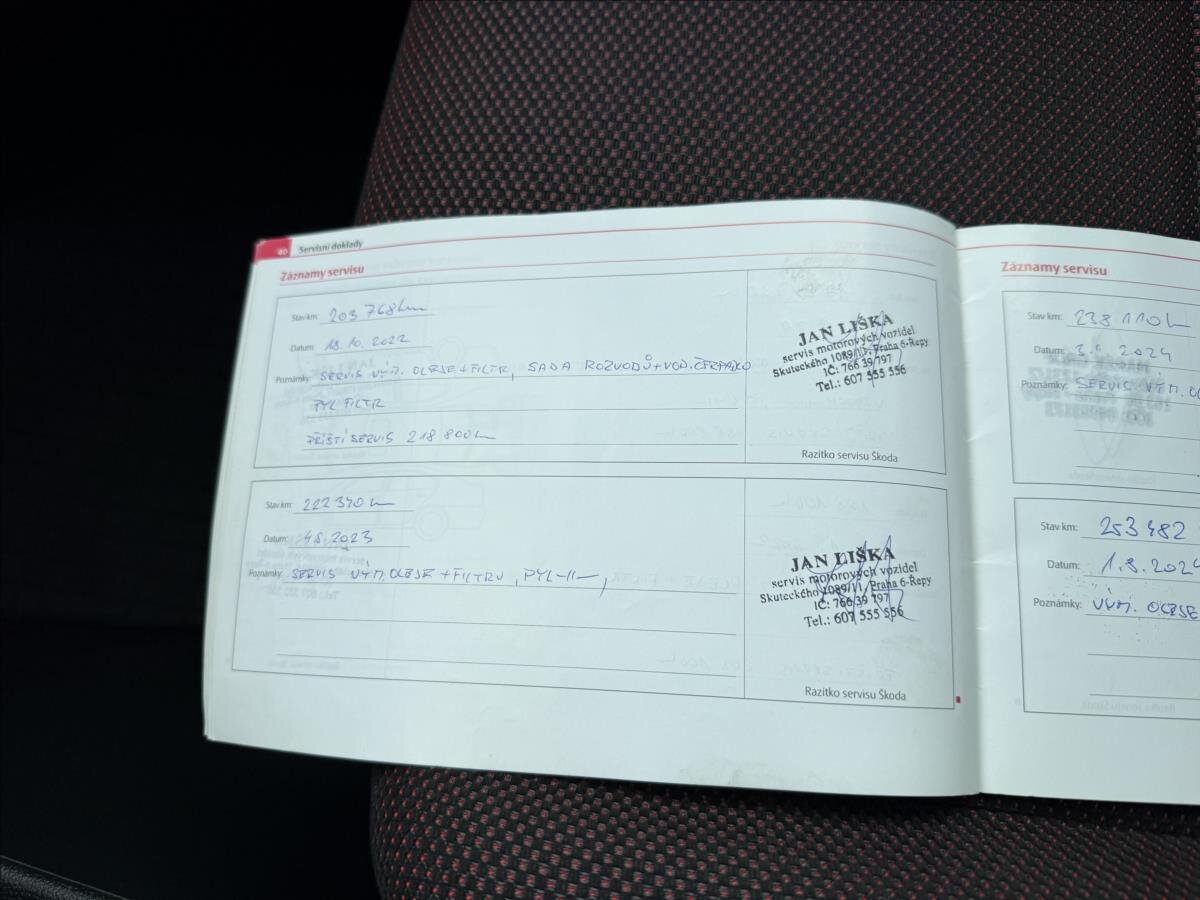 40 Servisní doklady
Záznamy servisu
Stav km: 203 768 km
Datum: 18.10.2022
Poznámky: SERVIS VÝM. OLEJE + FILTR, SADA ROZVODŮ + VOD. ČERPADLO
PYL FILTR
PŘÍŠTÍ SERVIS 218 800 km
JAN LIŠKA
servis motorových vozidel
Skuteckého 1089/11, Praha 6-Řepy
IČ: 766 39 797
Tel.: 607 555 556
Razítko servisu Škoda
Stav km: 222 340 km
Datum: 4.8.2023
Poznámky: SERVIS VÝM. OLEJE + FILTRU, PYL -II-,
JAN LIŠKA
servis motorových vozidel
Skuteckého 1089/11, Praha 6-Řepy
IČ: 766 39 797
Tel.: 607 555 556
Razítko servisu Škoda
Záznamy servisu
Stav km: 238 110 k
Datum: 2024
Poznámky: SERVIS VÝM. OL
Stav km: 253 482
Datum: 2024
Poznámky: VÝM. OLEJE